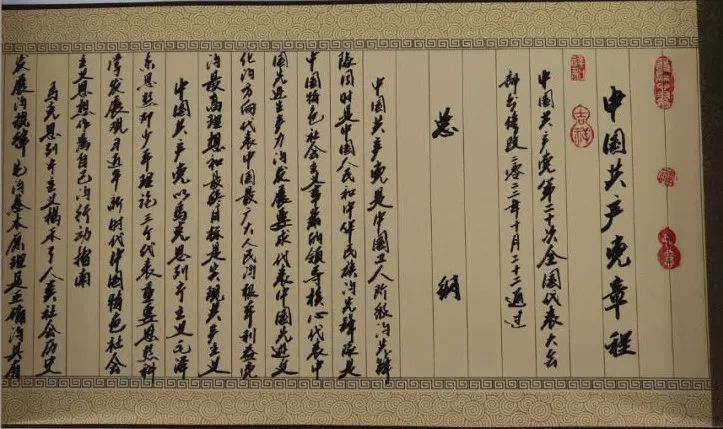 中国共产党章程
吉祥
中国共产党第二十次全国代表大会
部分修改二〇二二年十月二十二通过
总纲
中国共产党是中国工人阶级的先锋
队同时是中国人民和中华民族的先锋队是
中国特色社会主义事业的领导核心代表中
国先进生产力的发展要求代表中国先进文
化的方向代表中国最广大人民的根本利益党
的最高理想和最终目标是实现共产主义
中国共产党以马克思列宁主义毛泽
东思想邓小平理论三个代表重要思想科
学发展观习近平新时代中国特色社会
主义思想作为自己的行动指南
马克思列宁主义揭示了人类社会历史
发展的规律它的基本原理是正确的具有